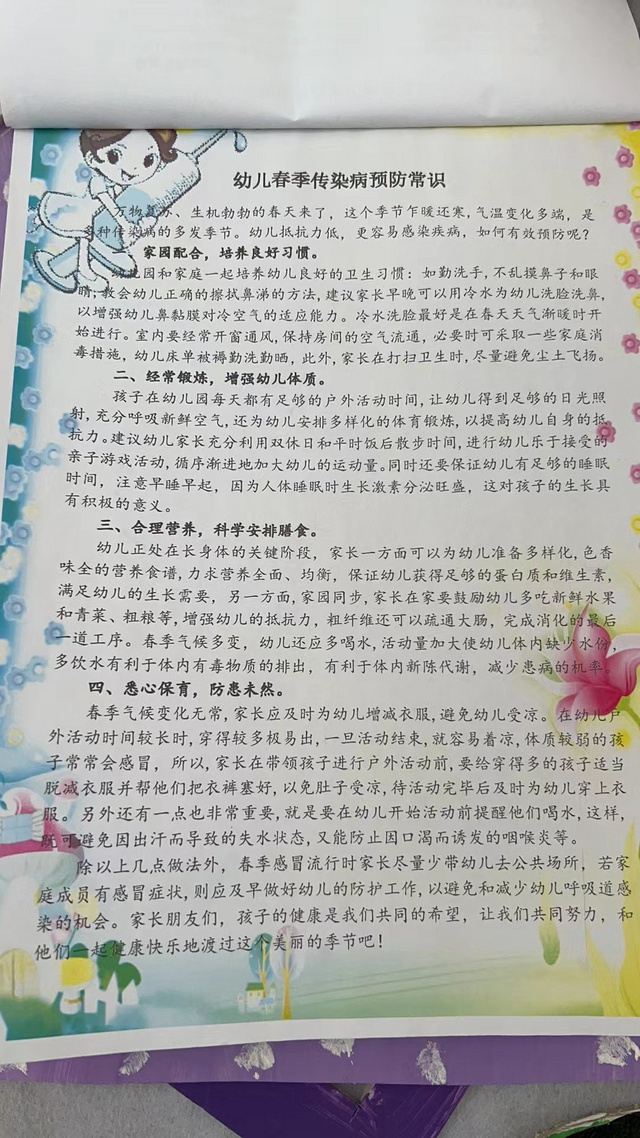 幼儿春季传染病预防常识
万物复苏、生机勃勃的春天来了，这个季节乍暖还寒,气温变化多端，是
多种传染病的多发季节。幼儿抵抗力低，更容易感染疾病，如何有效预防呢？
一、家园配合，培养良好习惯。
幼儿园和家庭一起培养幼儿良好的卫生习惯：如勤洗手,不乱摸鼻子和眼
睛,教会幼儿正确的擦拭鼻涕的方法,建议家长早晚可以用冷水为幼儿洗脸洗鼻,
以增强幼儿鼻黏膜对冷空气的适应能力。冷水洗脸最好是在春天天气渐暖时开
始进行。室内要经常开窗通风,保持房间的空气流通，必要时可采取一些家庭消
毒措施，幼儿床单被褥勤洗勤晒，此外，家长在打扫卫生时,尽量避免尘土飞扬。
二、经常锻炼，增强幼儿体质。
孩子在幼儿园每天都有足够的户外活动时间,让幼儿得到足够的日光照
射,充分呼吸新鲜空气,还为幼儿安排多样化的体育锻炼,以提高幼儿自身的抵
抗力。建议幼儿家长充分利用双休日和平时饭后散步时间,进行幼儿乐于接受的
亲子游戏活动,循序渐进地加大幼儿的运动量。同时还要保证幼儿有足够的睡眠
时间，注意早睡早起，因为人体睡眠时生长激素分泌旺盛，这对孩子的生长具
有积极的意义。
三、合理营养，科学安排膳食。
幼儿正处在长身体的关键阶段，家长一方面可以为幼儿准备多样化,色香
味全的营养食谱,力求营养全面、均衡，保证幼儿获得足够的蛋白质和维生素,
满足幼儿的生长需要，另一方面,家园同步,家长在家要鼓励幼儿多吃新鲜水果
和青菜、粗粮等,增强幼儿的抵抗力，粗纤维还可以疏通大肠，完成消化的最后
一道工序。春季气候多变，幼儿还应多喝水,活动量加大使幼儿体内缺少水份，
多饮水有利于体内有毒物质的排出，有利于体内新陈代谢，减少患病的机率。
四、悉心保育，防患未然。
春季气候变化无常,家长应及时为幼儿增减衣服,避免幼儿受凉。在幼儿户
外活动时间较长时,穿得较多极易出,一旦活动结束,就容易着凉,体质较弱的孩
子常常会感冒，所以,家长在带领孩子进行户外活动前,要给穿得多的孩子适当
脱减衣服并帮他们把衣裤塞好,以免肚子受凉,待活动完毕后及时为幼儿穿上衣
服。另外还有一点也非常重要,就是要在幼儿开始活动前提醒他们喝水,这样，
既可避免因出汗而导致的失水状态,又能防止因口渴而诱发的咽喉炎等。
除以上几点做法外，春季感冒流行时家长尽量少带幼儿去公共场所，若家
庭成员有感冒症状,则应及早做好幼儿的防护工作,以避免和减少幼儿呼吸道感
染的机会。家长朋友们，孩子的健康是我们共同的希望，让我们共同努力，和
他们一起健康快乐地渡过这个美丽的季节吧！